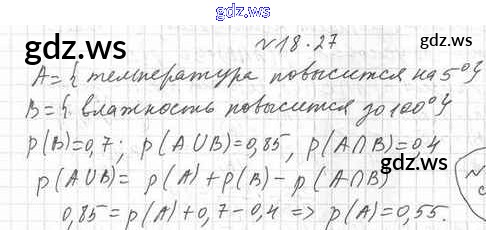 gdz.ws
№18.27
gdz.ws
gdz.ws
A={температура повысится на 5°}
B={влажность повысится до 100°}
p(B)=0,7; p(A∪B)=0,85, p(A∩B)=0,4
gdz.ws
gdz.ws
p(A∪B)= p(A)+p(B)-p(A∩B)
0,85=p(A)+0,7-0,4=> p(A)=0,55.